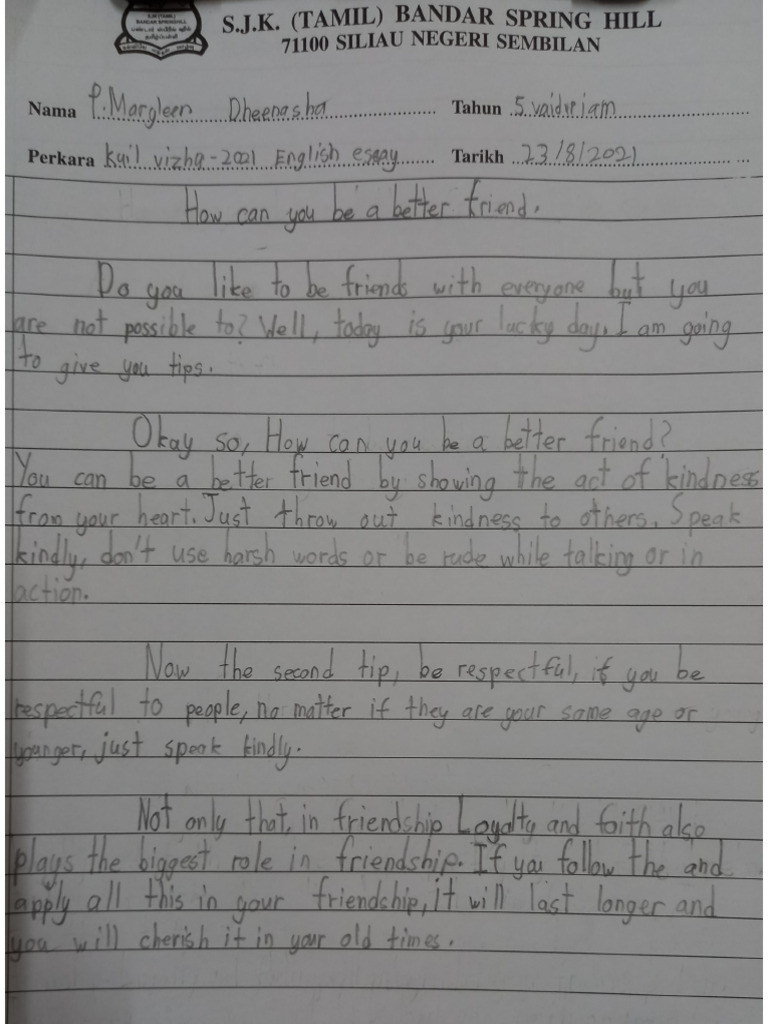 S.J.K. (TAMIL) BANDAR SPRING HILL
71100 SILIAU NEGERI SEMBILAN
Nama P. Margleen Dheenasha Tahun 5 vaidiriam
Perkara kuil vizha-2021 English essay Tarikh 23/8/2021
How can you be a better friend.
Do you like to be friends with everyone but you
are not possible to? Well, today is your lucky day. I am going
to give you tips.
Okay so, How can you be a better friend?
You can be a better friend by showing the act of kindness
from your heart. Just throw out kindness to others. Speak
kindly, don't use harsh words or be rude while talking or in
action.
Now the second tip, be respectful, if you be
respectful to people, no matter if they are your same age or
younger, just speak kindly.
Not only that, in friendship Loyalty and faith also
plays the biggest role in friendship. If you follow the and
apply all this in your friendship, it will last longer and
you will cherish it in your old times.